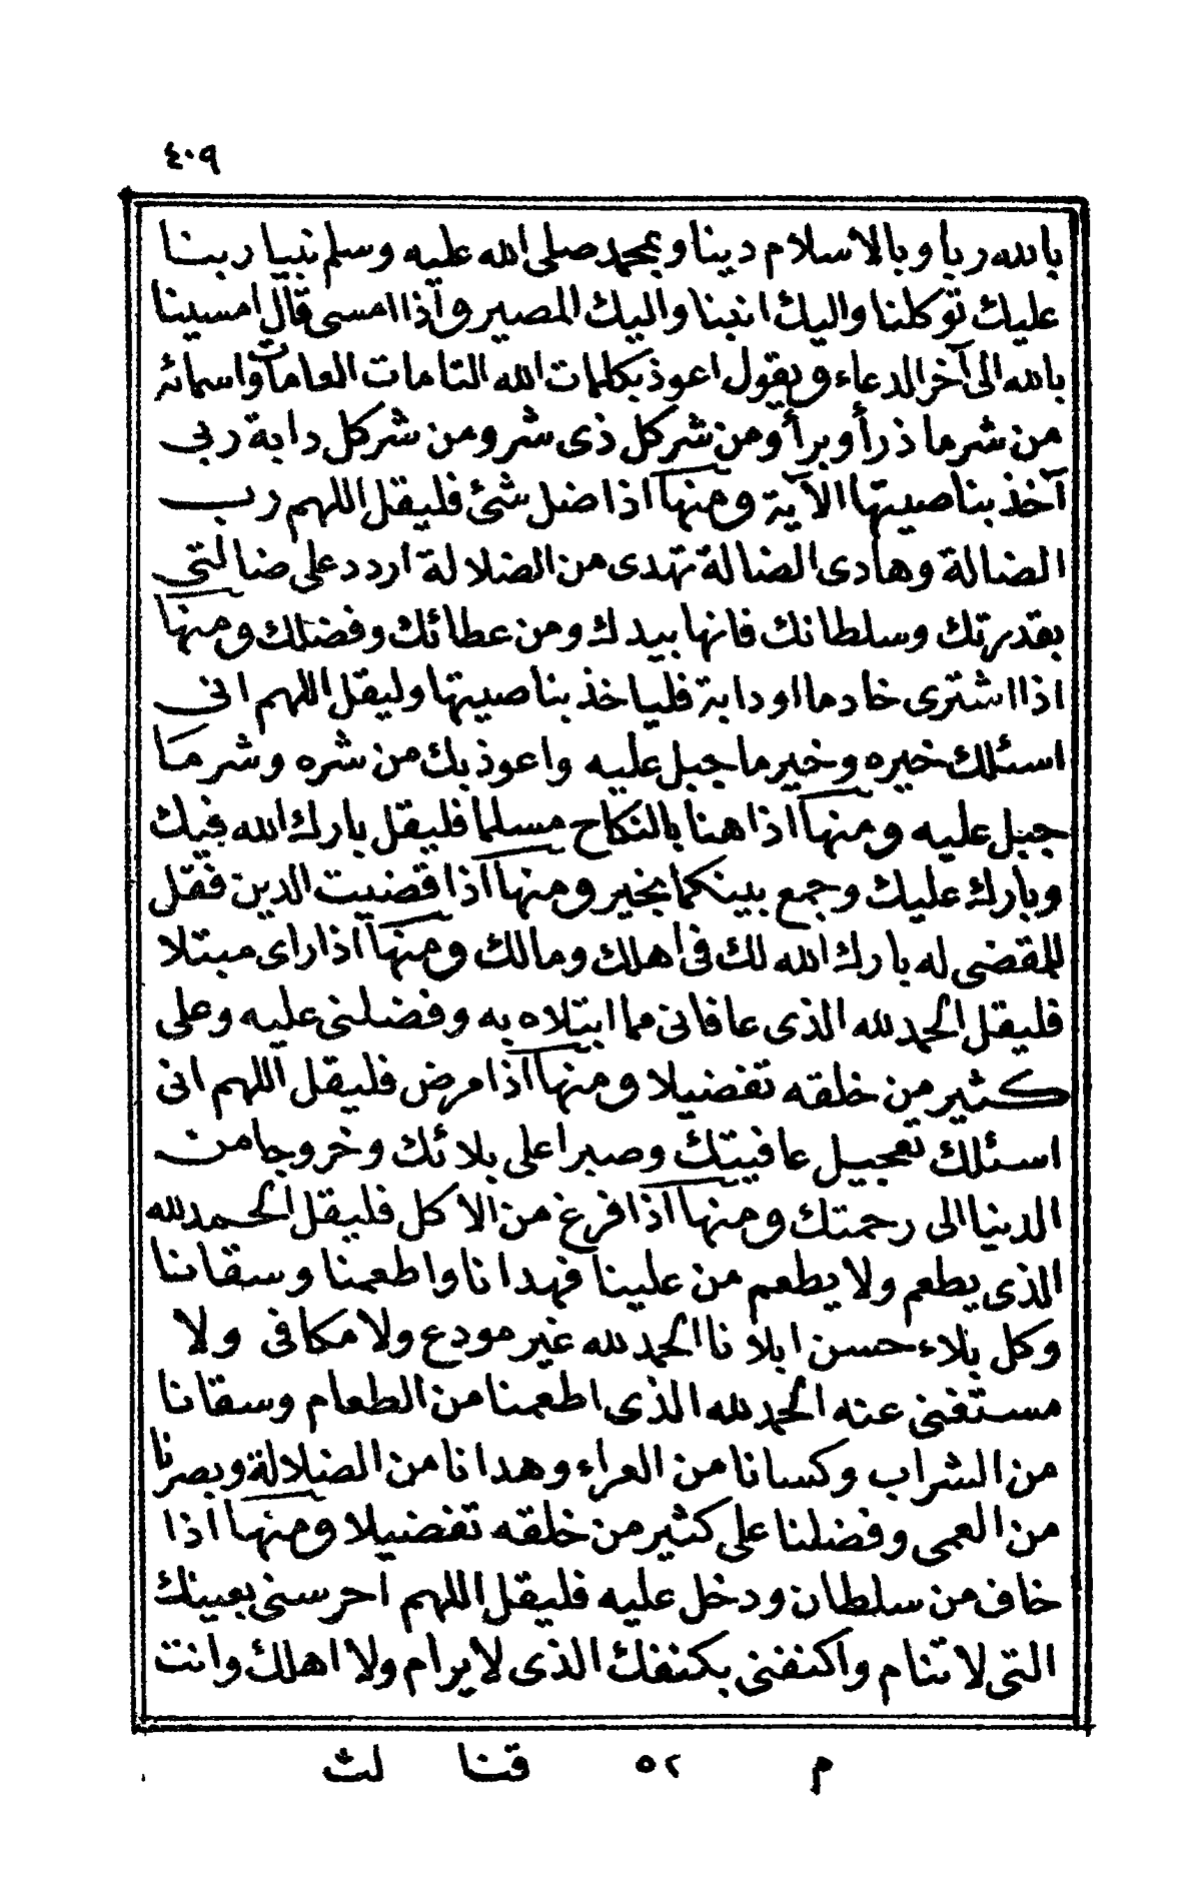 ٤٠٩
بالله ربا وبالاسلام دينا وبمحمد صلى الله عليه وسلم نبيا ربنا
عليك توكلنا واليك انبنا واليك المصير وآذا امسى قال امسينا
بالله الى آخر الدعاء ويقول اعوذ بكلمات الله التامات العامات واسمائه
من شر ما ذرأ وبرأ ومن شر كل ذى شر ومن شر كل دابة ربى
آخذ بناصيتها الآية ومنها اذا ضل شئ فليقل اللهم رب
الضالة وهادى الضالة تهدى من الضلالة اردد على ضالتى
بقدرتك وسلطانك فانها بيدك ومن عطائك وفضلك ومنها
اذا اشترى خادما او دابة فلياخذ بناصيتها وليقل اللهم انى
اسئلك خيره وخير ما جبل عليه واعوذ بك من شره وشر ما
جبل عليه ومنها اذا هنا بالنكاح مسلما فليقل بارك الله فيك
وبارك عليك وجمع بينكما بخير ومنها اذا قضيت الدين فقل
للمقضى له بارك الله لك فى اهلك ومالك ومنها اذا راى مبتلا
فليقل الحمد لله الذى عافانى مما ابتلاه به وفضلنى عليه وعلى
كثير من خلقه تفضيلا ومنها اذا مرض فليقل اللهم انى
اسئلك تعجيل عافيتك وصبرا على بلائك وخروجا من
الدنيا الى رحمتك ومنها اذا فرغ من الاكل فليقل الحمد لله
الذى يطعم ولا يطعم من علينا فهدانا واطعمنا وسقانا
وكل بلاء حسن ابلانا الحمد لله غير مودع ولا مكافى ولا
مستغنى عنه الحمد لله الذى اطعمنا من الطعام وسقانا
من الشراب وكسانا من العراء وهدانا من الضلالة وبصرنا
من العمى وفضلنا على كثير من خلقه تفضيلا ومنها اذا
خاف من سلطان ودخل عليه فليقل اللهم احرسنى بعينك
التى لا تنام واكنفنى بكنفك الذى لا يرام ولا اهلك وانت
م ٥٢ قنا لث